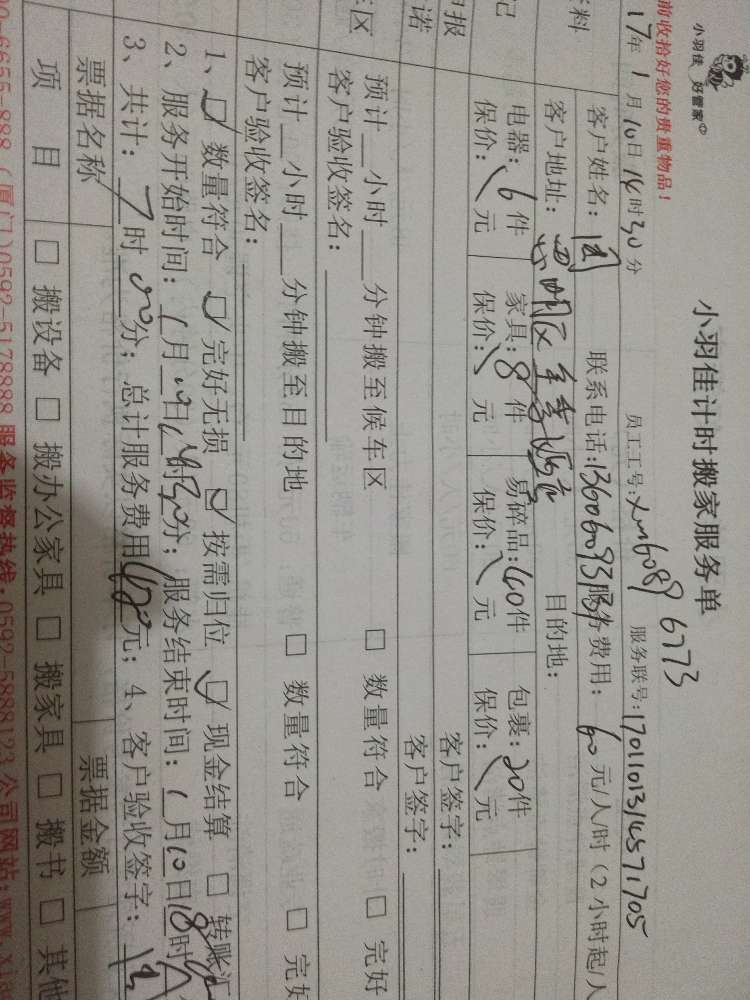 小羽佳 好管家
小羽佳计时搬家服务单
前收拾好您的贵重物品！
17年1月10日14时30分 员工工号: xm6089 6773 服务联号: 17011013145 71705
料 客户姓名: 周 联系电话: 服务费用: 60元/人/时（2小时起/人
客户地址: 思明区 目的地:
记 电器: 6件 家具: 8件 易碎品: 40件 包裹: 20件
保价: \元 保价: \元 保价: \元 保价: \元
报 客户签字:
诺 客户签字:
车区 预计 小时 分钟搬至候车区 □ 数量符合 □ 完好
客户验收签名:
预计 小时 分钟搬至目的地 □ 数量符合 □ 完好
客户验收签名:
1、☑ 数量符合 ☑ 完好无损 ☑ 按需归位 ☑ 现金结算 □ 转账汇
2、服务开始时间: 1月10日14时30分; 服务结束时间: 1月10日18时
3、共计: 7时00分; 总计服务费用480元; 4、客户验收签字:
票据名称 票据金额
项 目 □ 搬设备 □ 搬办公家具 □ 搬家具 □ 搬书 □ 其他
00-6655-888（厦门)0592-5178888 服务监督热线:0592-5888123 公司网站:www.xia